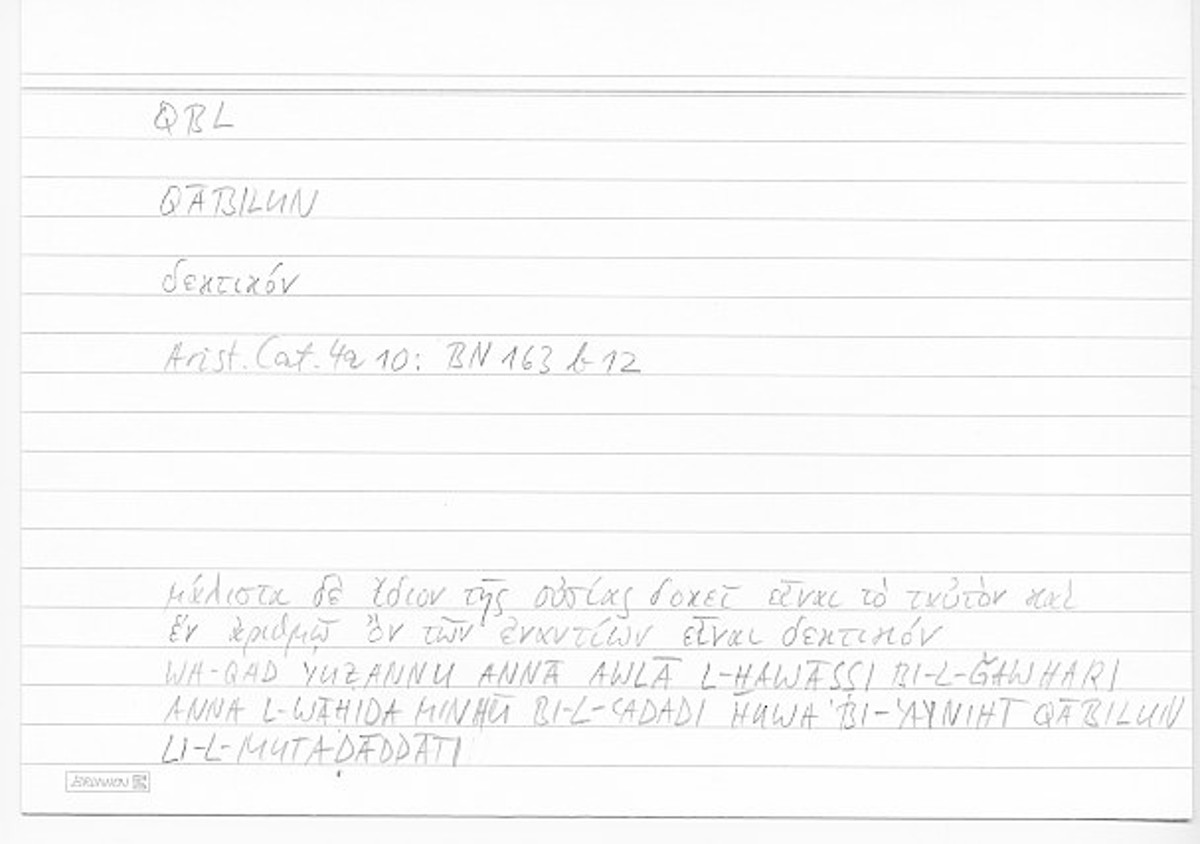 QBL
QĀBILUN
δεκτικόν
Arist. Cat. 4a 10: BN 163 b 12
μάλιστα δὲ ἴδιον τῆς οὐσίας δοκεῖ εἶναι τὸ ταὐτὸν καὶ
ἓν ἀριθμῷ ὂν τῶν ἐναντίων εἶναι δεκτικόν
WA-QAD YUẒANNU ANNA AWLĀ L-ḪAWĀṢṢI BI-L-ǦAWHARI
ANNA L-WĀḤIDA MINHŪ BI-L-ʿADADI HUWA BI-ʿAYNIHĪ QĀBILUN
LI-L-MUTAḌĀDDĀTI
BRUNNEN